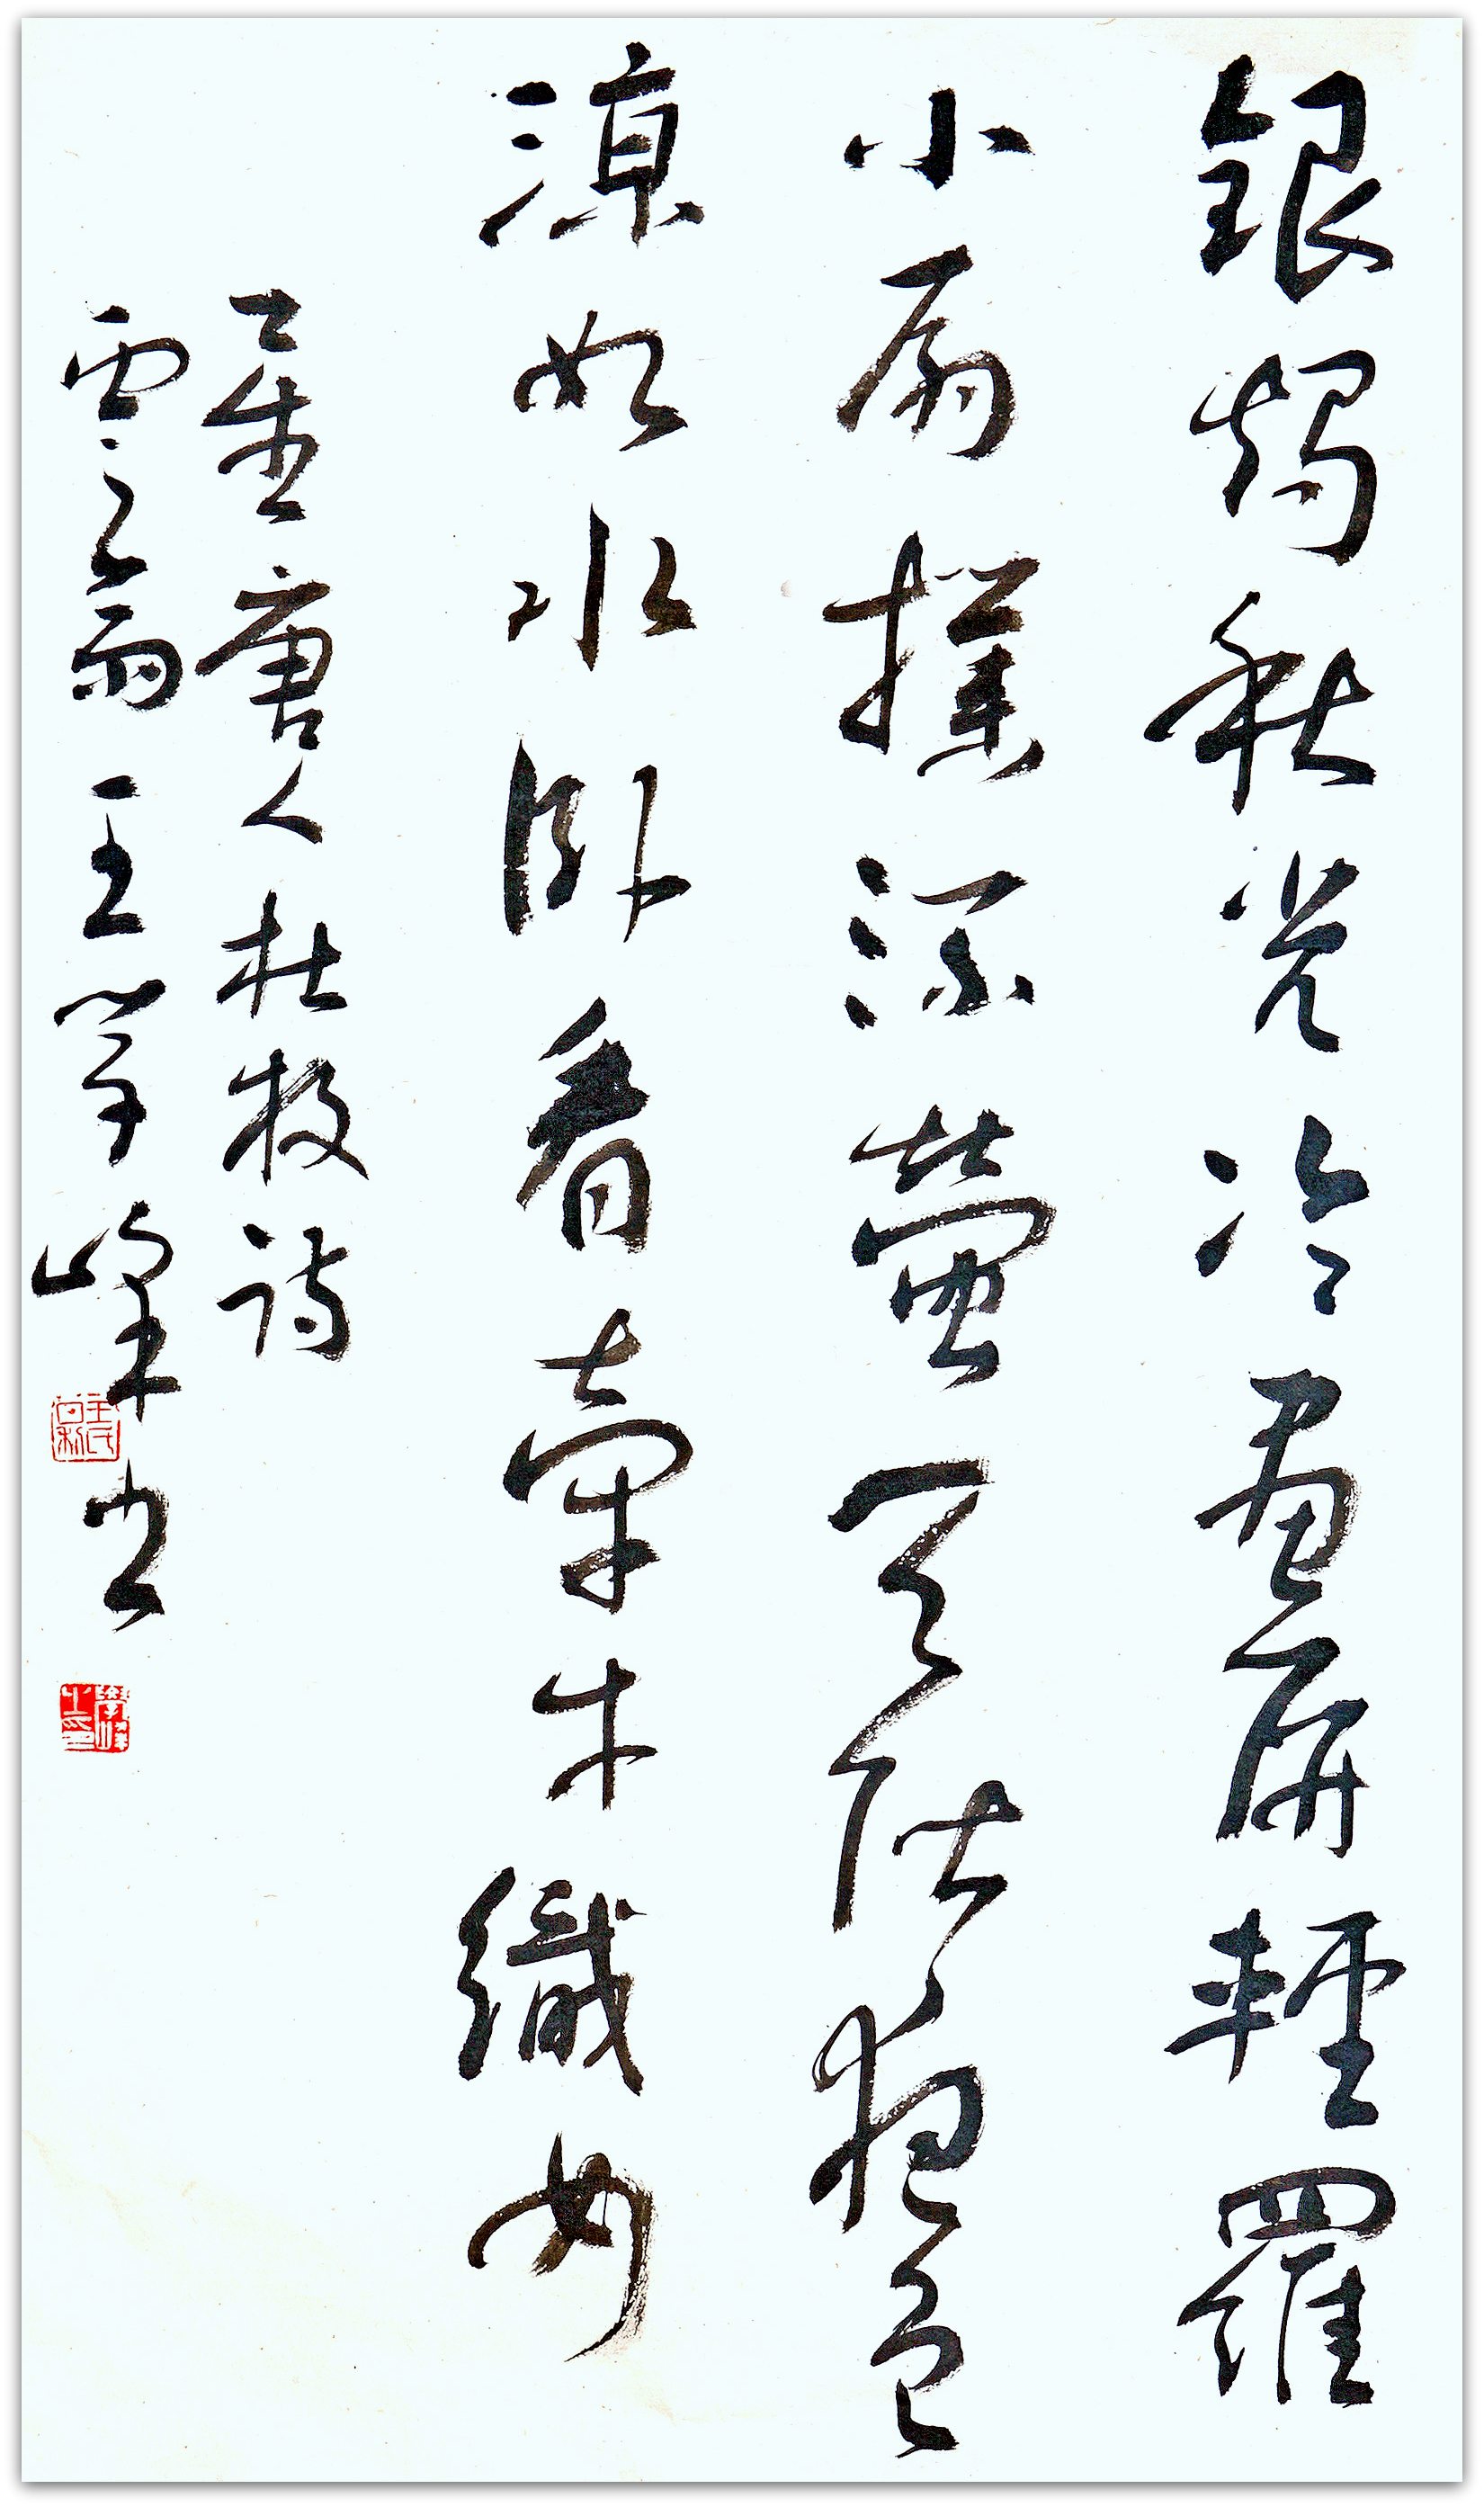 銀燭秋光冷畫屏輕羅
小扇撲流螢天階夜色
涼如水臥看牽牛織女
星唐人杜牧詩
雲翁王學峰書
學峰之印